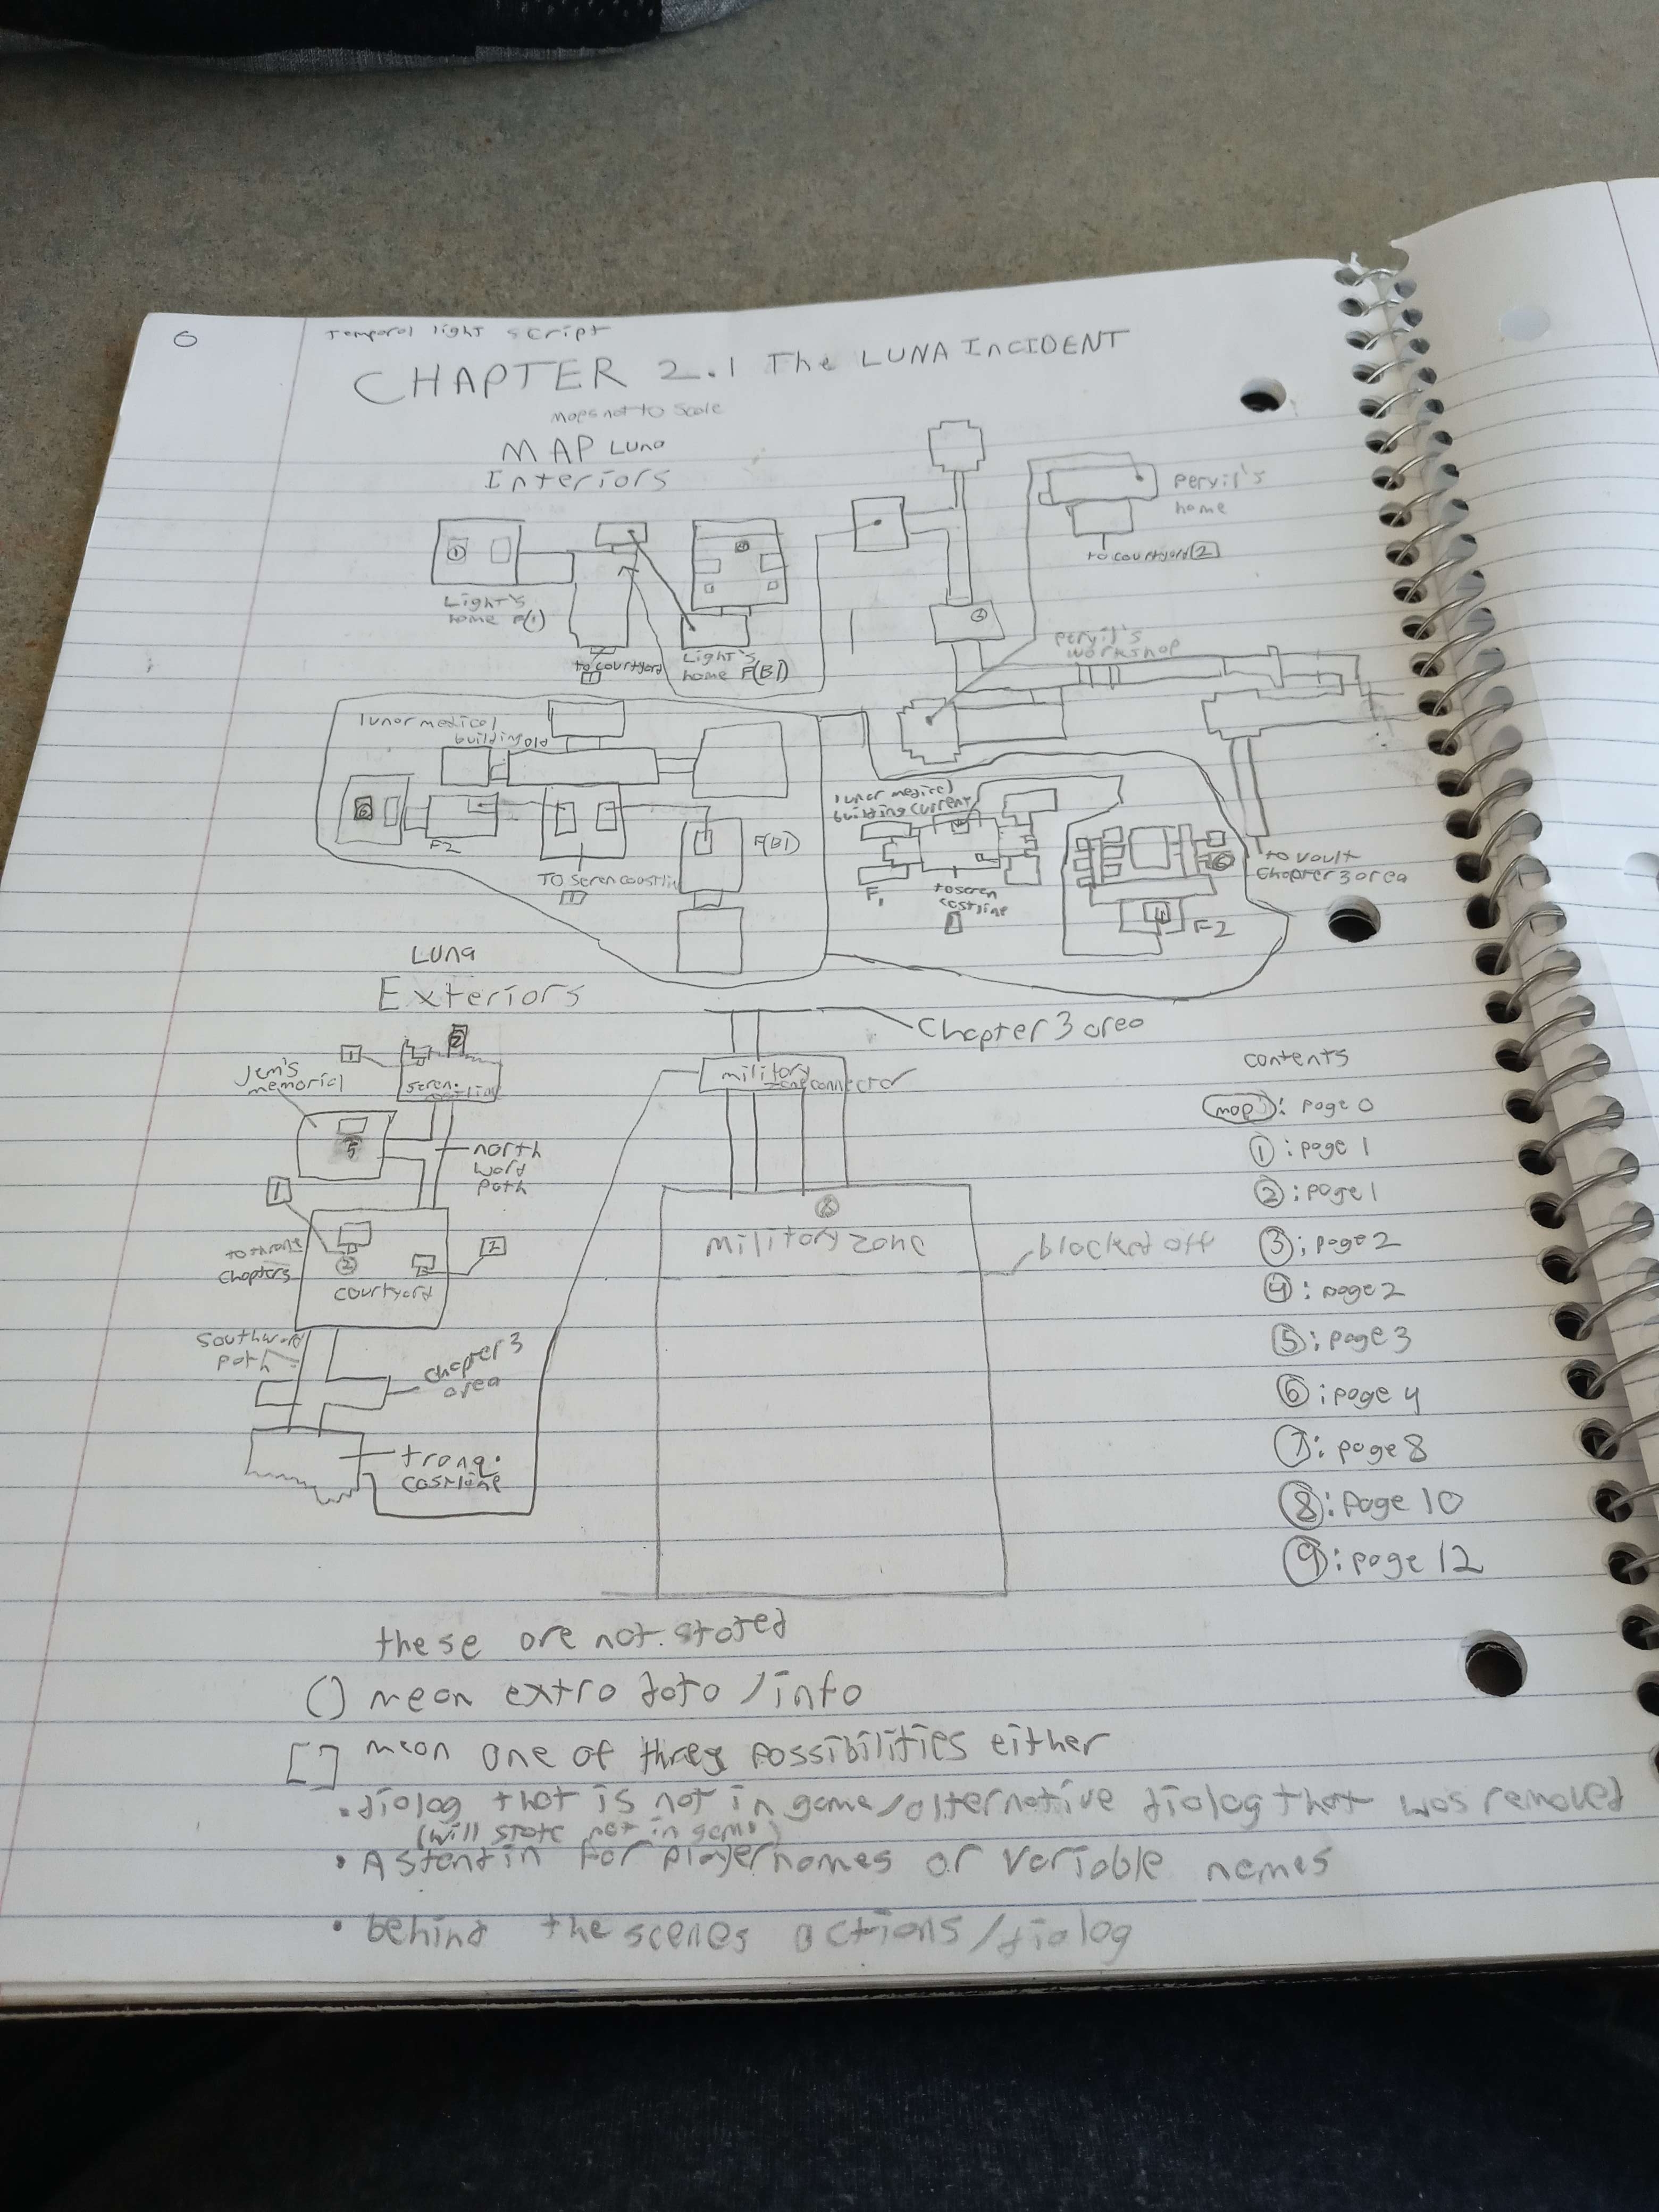 0
Temporal light script
CHAPTER 2.1 The LUNA INCIDENT
Maps not to Scale
MAP Luna
Interiors
1
Light's
home F(1)
to courtyard
1
4
Light's
home F(B1)
3
pervil's
home
to courtyard 2
pervil's
workshop
lunar medical
building old
6
F2
TO seren coastlin
1
F(B1)
lunar medical
building current
F1
to seren
costline
6
F2
to vault
Chapter 3 area
LUNA
Exteriors
1
2
Jem's
memorial
seren.
5
north
word
path
1
to
chapters
2
2
courtyard
southword
path
chapter 3
area
tranq.
costline
Chapter 3 area
military
zone connector
8
military zone
blocked off
contents
map: page 0
1: page 1
2: page 1
3: page 2
4: page 2
5: page 3
6: page 4
7: page 8
8: page 10
9: page 12
these are not stated
() mean extra data/info
[] mean one of three possibilities either
• dialog that is not in game/alternative dialog that was removed
(will state not in game)
• A standin for player names or variable names
• behind the scenes actions/dialog